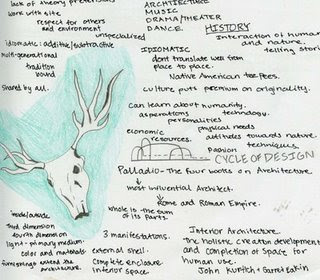 lack of theory pretensions
work with site
respect for others
and environment
unspecialized
idiomatic: additive/subtractive
multi-generational
tradition
bound
Shared by all.
ARCHITECTURE
MUSIC
DRAMA/THEATER
DANCE.
HISTORY
Interaction of human
and nature.
telling stori
IDIOMATIC
dont translate well from
place to place.
Native American tee-pees.
culture puts premium on originality.
can learn about humanity.
asperations technology.
personalities
economic physical needs
resources. attitudes towards nature.
Fashion techniques
CYCLE OF DESIGN
Palladio- The four books on Architecture.
most influential Architect.
Rome and Roman Empire.
whole is the sum
of its parts.
inside/outside
third dimension
fourth dimension
light - primary medium.
color and materials
furnishings extend the
architecture.
3 manifestations.
external shell.
Complete enclosure
interior space.
Interior Architecture.
The holistic creation development
and completion of space for
human use.
John Kurtich Garret Eakin